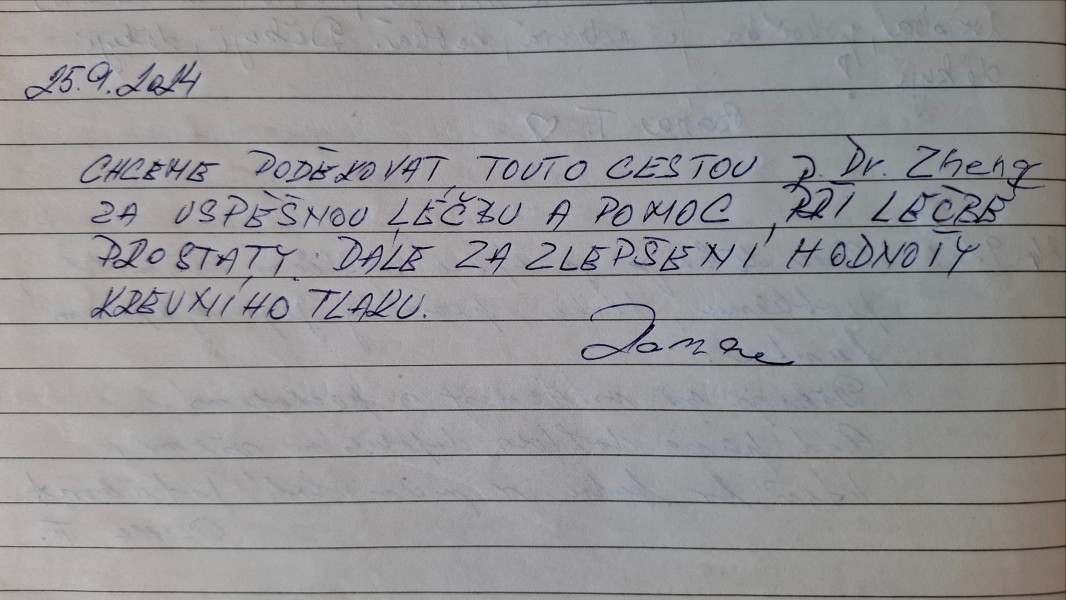 25.9.2024
CHCEME PODĚKOVAT TOUTO CESTOU P. Dr. Zheng
ZA USPĚŠNOU LÉČBU A POMOC PŘI LÉČBĚ
PROSTATY. DÁLE ZA ZLEPŠENÍ HODNOTY
KREVNÍHO TLAKU.